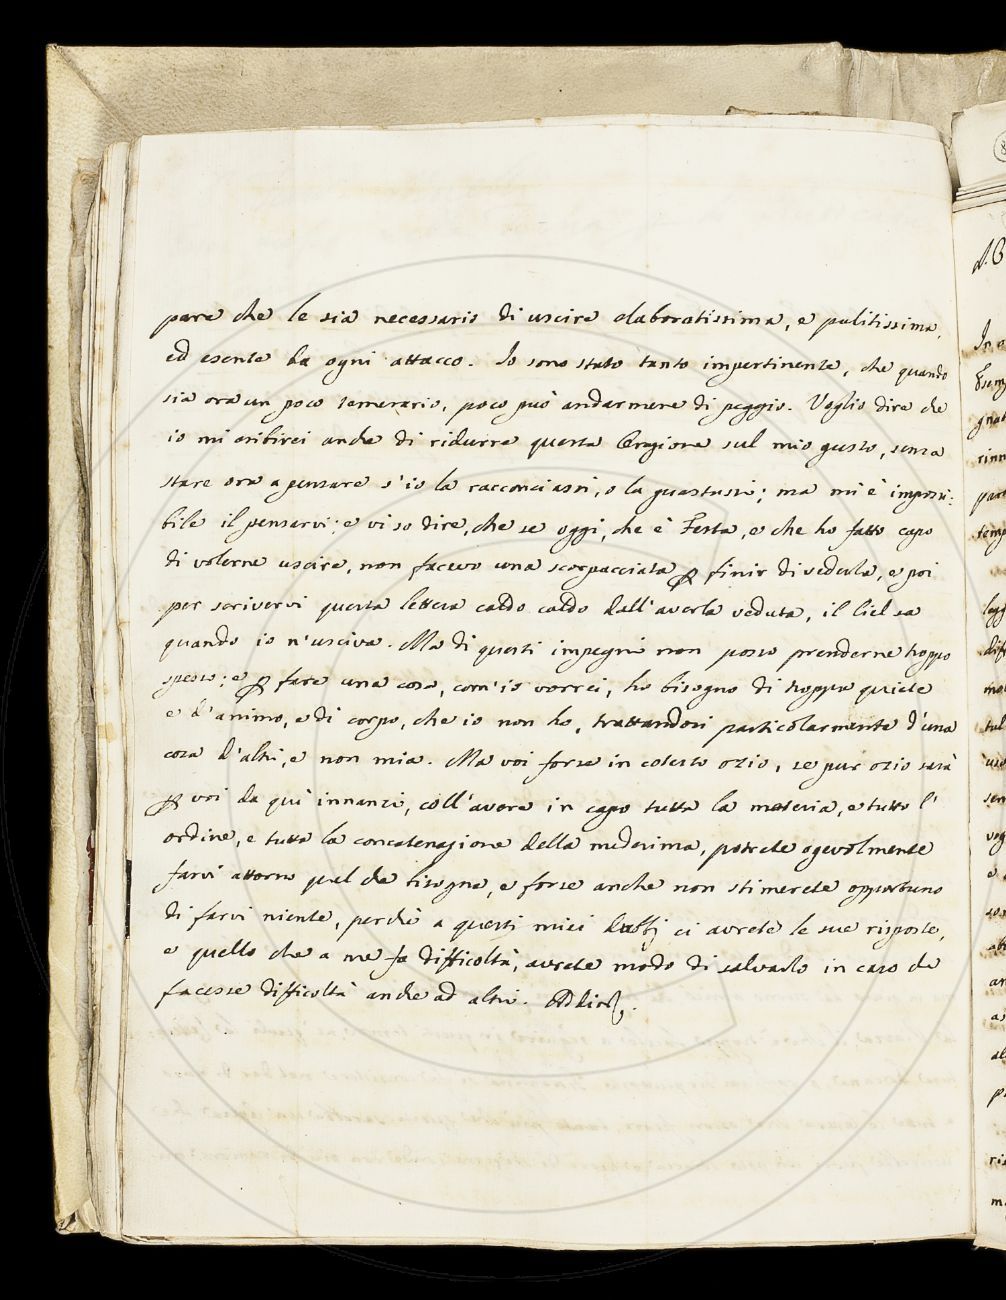 pare che le sia necessario di uscire elaboratissima, e pulitissima,
ed esente da ogni attacco. Io sono stato tanto impertinente, che quando
sia ora un poco temerario, poco può andarmene di peggio. Voglio dire che
io mi esibirei anche di ridurre questa sul mio gusto, senza
stare ora a pensare s'io la racconciassi, o la guastassi; ma mi è impossi-
bile il pensarvi; e vi so dire, che se oggi, che è Festa, e che ho fatto capo
di volerne uscire, non facevo una scorpacciata ꝑ finir di vederla, e poi
per scrivervi questa lettera caldo caldo dall'averla veduta, il Ciel sa
quando io n'usciva. Ma di questi impegni non posso prenderne troppo
spesso; e ꝑ fare una cosa, com'io vorrei, ho bisogno di troppa quiete
e d'animo, e di corpo, che io non ho, trattandosi particolarmente d'una
cosa d'altri, e non mia. Ma voi forse in cotesto ozio, se pur ozio sarà
ꝑ voi da quì innanzi, coll'avere in capo tutta la materia, e tutto l'
ordine, e tutta la concatenazione della medesima, potrete agevolmente
farvi attorno quel che bisogna, e forse anche non stimerete opportuno
di farvi niente, perchè a questi miei dubbj ci avrete le sue risposte,
e quello che a me fa difficoltà, avrete modo di salvarlo in caso che
facesse difficoltà anche ad altri. Addio.